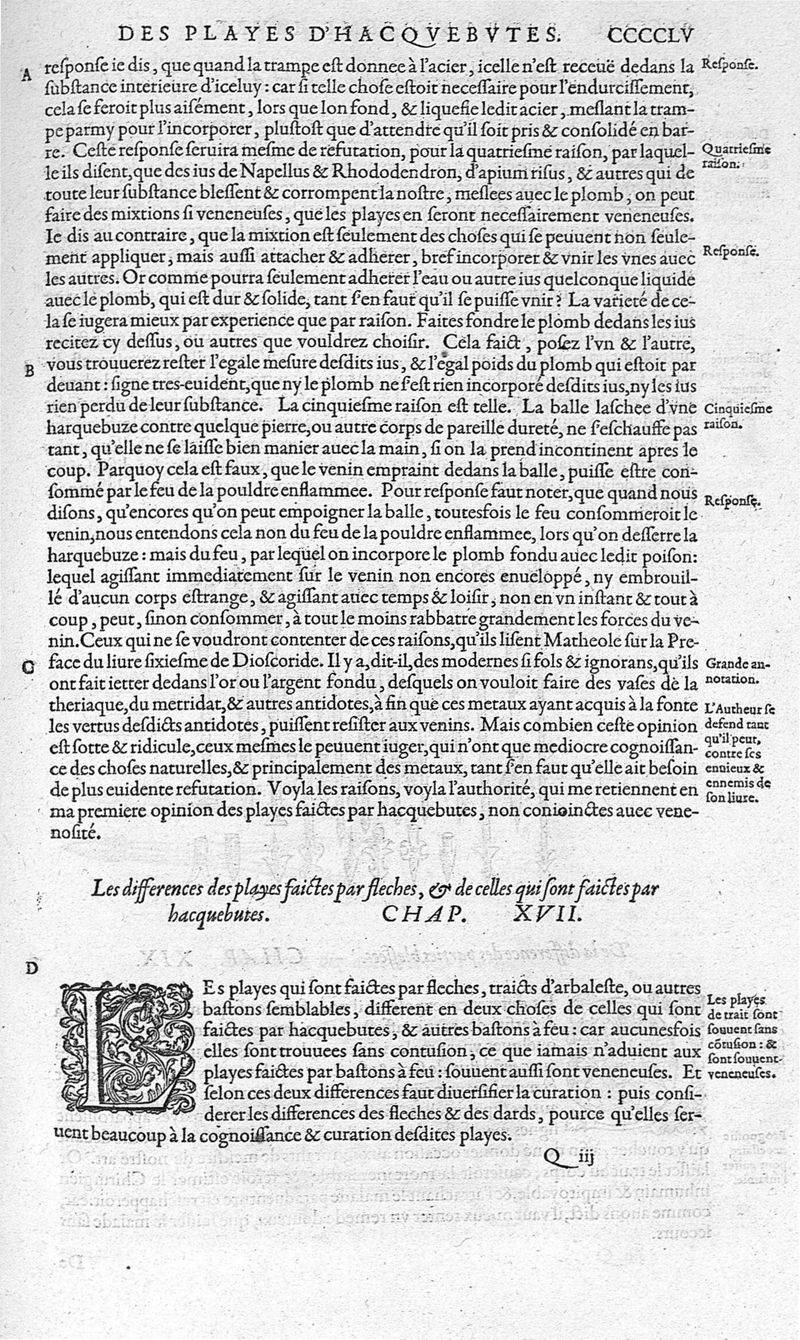 DES PLAYES D'HACQVEBVTES. CCCCLV
A
reſponſe ie dis, que quand la trampe eſt donnee à l'acier, icelle n'eſt receuë dedans la
Reſponſe.
ſubſtance interieure d'iceluy : car ſi telle choſe eſtoit neceſſaire pour l'endurciſſement,
cela ſe feroit plus aiſément, lors que lon fond, & liquefie ledit acier, meſlant la tram-
pe parmy pour l'incorporer, pluſtoſt que d'attendre qu'il ſoit pris & conſolidé en bar-
re. Ceſte reſponſe ſeruira meſme de refutation, pour la quatrieſme raiſon, par laquel-
Quatrieſme
raiſon.
le ils diſent, que des ius de Napellus & Rhododendron, d'apium riſus, & autres qui de
toute leur ſubſtance bleſſent & corrompent la noſtre, meſlees auec le plomb, on peut
faire des mixtions ſi veneneuſes, que les playes en ſeront neceſſairement veneneuſes.
Ie dis au contraire, que la mixtion eſt ſeulement des choſes qui ſe peuuent non ſeule-
ment appliquer, mais auſſi attacher & adherer, bref incorporer & vnir les vnes auec
Reſponſe.
les autres. Or comme pourra ſeulement adherer l'eau ou autre ius quelconque liquide
auec le plomb, qui eſt dur & ſolide, tant ſ'en faut qu'il ſe puiſſe vnir ? La varieté de ce-
la ſe iugera mieux par experience que par raiſon. Faites fondre le plomb dedans les ius
recitez cy deſſus, ou autres que vouldrez choiſir. Cela faict, poſez l'vn & l'autre,
B
vous trouuerez reſter l'egale meſure deſdits ius, & l'égal poids du plomb qui eſtoit par
deuant : ſigne tres-euident, que ny le plomb ne ſ'eſt rien incorporé deſdits ius, ny les ius
rien perdu de leur ſubſtance. La cinquieſme raiſon eſt telle. La balle laſchee d'vne
Cinquieſme
raiſon.
harquebuze contre quelque pierre, ou autre corps de pareille dureté, ne ſ'eſchauffe pas
tant, qu'elle ne ſe laiſſe bien manier auec la main, ſi on la prend incontinent apres le
coup. Parquoy cela eſt faux, que le venin empraint dedans la balle, puiſſe eſtre con-
ſommé par le feu de la pouldre enflammee. Pour reſponſe faut noter, que quand nous
Reſponſe.
diſons, qu'encores qu'on peut empoigner la balle, toutesfois le feu conſommeroit le
venin, nous entendons cela non du feu de la pouldre enflammee, lors qu'on deſſerre la
harquebuze : mais du feu, par lequel on incorpore le plomb fondu auec ledit poiſon:
lequel agiſſant immediatement ſur le venin non encores enueloppé, ny embrouil-
lé d'aucun corps eſtrange, & agiſſant auec temps & loiſir, non en vn inſtant & tout à
coup, peut, ſinon conſommer, à tout le moins rabbatre grandement les forces du ve-
nin. Ceux qui ne ſe voudront contenter de ces raiſons, qu'ils liſent Matheole ſur la Pre-
C
face du liure ſixieſme de Dioſcoride. Il y a, dit-il, des modernes ſi fols & ignorans, qu'ils
Grande an-
notation.
ont fait ietter dedans l'or ou l'argent fondu, deſquels on vouloit faire des vaſes de la
theriaque, du metridat, & autres antidotes, à fin que ces metaux ayant acquis à la fonte
L'Autheur ſe
defend tant
qu'il peut,
contre ſes
ennieux &
ennemis de
ſon liure.
les vertus deſdicts antidotes, puiſſent reſiſter aux venins. Mais combien ceſte opinion
eſt ſotte & ridicule, ceux meſmes le peuuent iuger, qui n'ont que mediocre cognoiſſan-
ce des choſes naturelles, & principalement des metaux, tant ſ'en faut qu'elle ait beſoin
de plus euidente refutation. Voyla les raiſons, voyla l'authorité, qui me retiennent en
ma premiere opinion des playes faictes par hacquebutes, non conioinctes auec vene-
noſité.
Les differences des playes faictes par fleches, & de celles qui ſont faictes par
hacquebutes. CHAP. XVII.
D
LEs playes qui ſont faictes par fleches, traicts d'arbaleſte, ou autres
baſtons ſemblables, different en deux choſes de celles qui ſont
Les playes
de trait ſont
ſouuent ſans
cõtuſion : &
ſont ſouuent
veneneuſes.
faictes par hacquebutes, & autres baſtons à feu : car aucunesfois
elles ſont trouuees ſans contuſion, ce que iamais n'aduient aux
playes faictes par baſtons à feu : ſouuent auſſi ſont veneneuſes. Et
ſelon ces deux differences faut diuerſifier la curation : puis conſi-
derer les differences des fleches & des dards, pource qu'elles ſer-
uent beaucoup à la cognoiſſance & curation deſdites playes.
Q iij